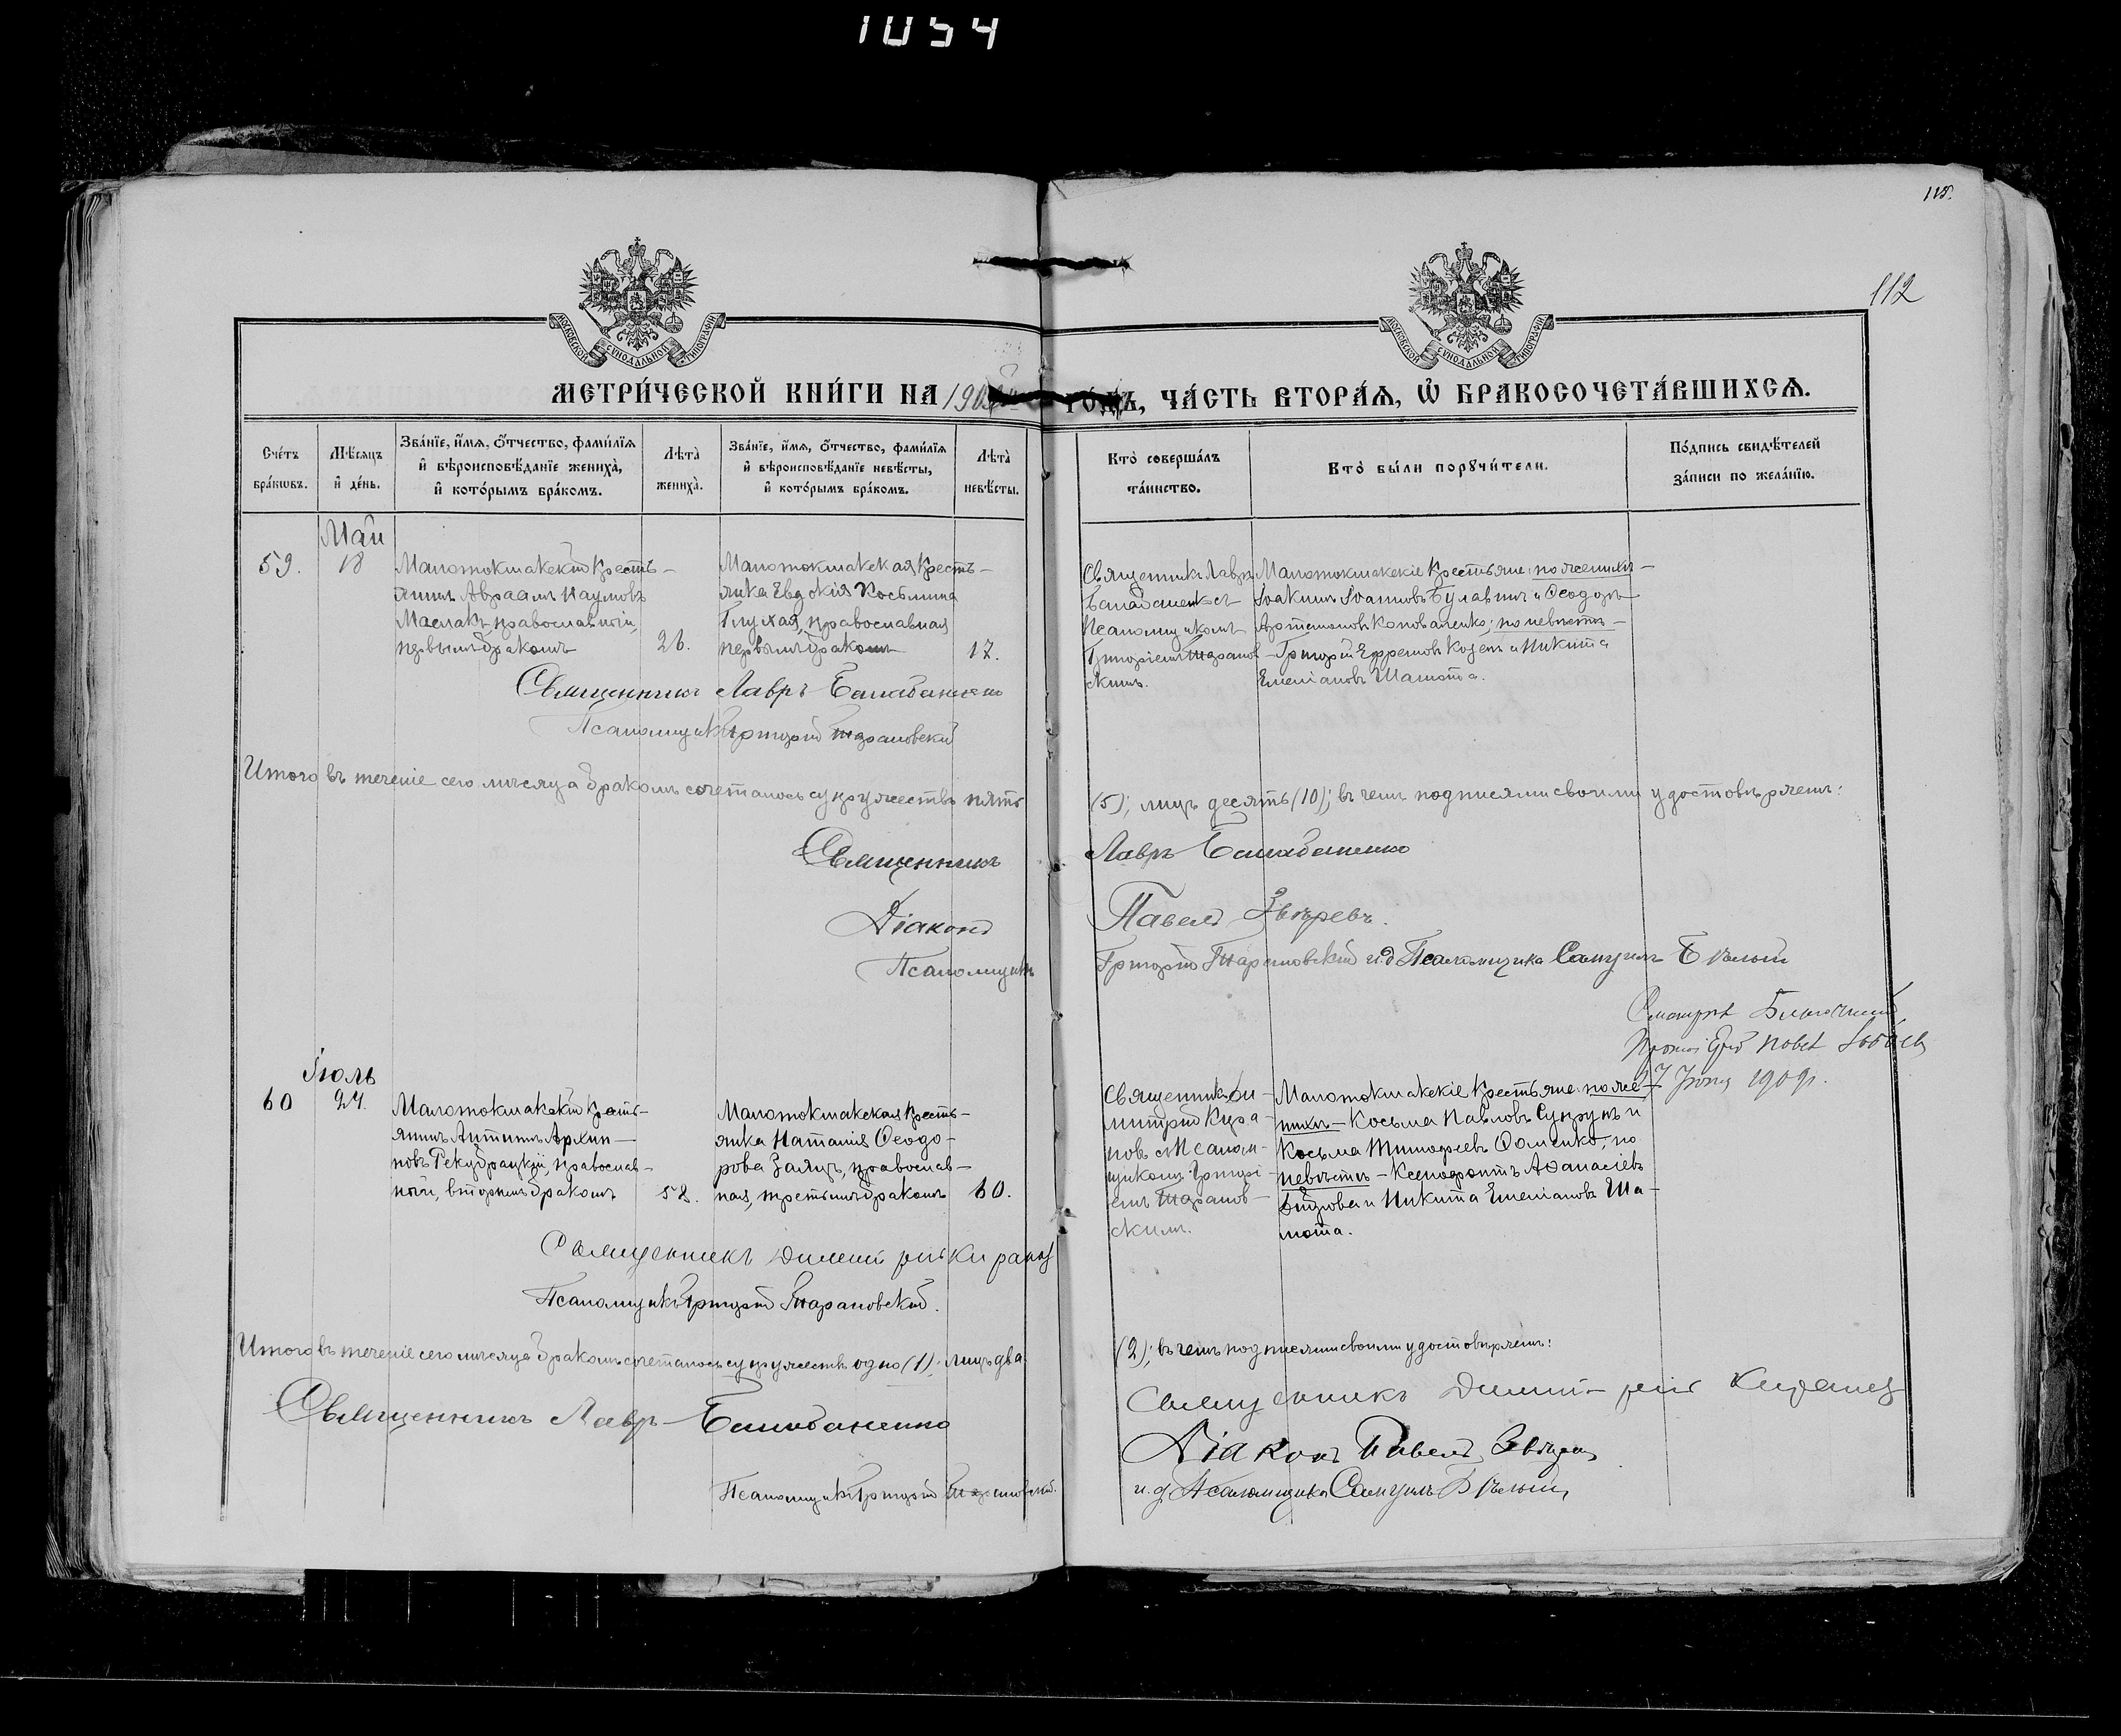 1054
115.
112
МОСКОВСКОЙ СѴНОДАЛЬНОЙ ТИПОГРАФІИ
МОСКОВСКОЙ СѴНОДАЛЬНОЙ ТИПОГРАФІИ
МЕТРИ́ЧЕСКОЙ КНИ́ГИ НА 190
ГО́ДЪ, ЧА́СТЬ ВТОРА́Ѧ, Ѡ҆ БРАКОСОЧЕТА́ВШИХСѦ.
Сче́тъ бра́кѡвъ.
Мѣ́сѧцъ и҆ де́нь.
Зва́нїе, и҆́мѧ, ѻ҆́тчество, фами́лїѧ
и҆ вѣроисповѣ́данїе жениха̀,
и҆ кото́рымъ бра́комъ.
Лѣта̀ жениха̀.
Зва́нїе, и҆́мѧ, ѻ҆́тчество, фами́лїѧ
и҆ вѣроисповѣ́данїе невѣ́сты,
и҆ кото́рымъ бра́комъ.
Лѣта̀ невѣ́сты.
Кто̀ соверша́лъ та́инство.
Кто̀ бы́ли порꙋчи́тели.
По́дпись свидѣ́телей за́писи по жела́нїю.
Май
59.
18
Малотокмакскій кресть-
янинъ Авраамъ Наумовъ
Маслакъ, православный,
первымъ бракомъ
26.
Малотокмакская кресть-
янка Евдокія Косьмина
Глухая, православная
первымъ бракомъ
17.
Священникъ Лавръ
Балабаненко съ
Псаломщикомъ
Григоріемъ Таранов-
скимъ.
Малотокмакскіе крестьяне: по женихѣ-
Іоакимъ Іоанновъ Булавинъ и Ѳеодоръ
Артемоновъ Коноваленко; по невѣстѣ-
Григорій Ефремовъ Козелъ и Никита
Емеліановъ Шамота.
Священникъ Лавръ Балабаненко
Псаломщикъ Григорій Тарановскій
Итого въ теченіе сего мѣсяца бракомъ сочеталось супружествъ пять
(5); лицъ десять (10); въ чемъ подписями своими удостовѣряемъ:
Священникъ
Лавръ Балабаненко
Діаконъ
Павелъ Звѣревъ.
Псаломщикъ
Григорій Тарановскій и.д. Псаломщика Самуилъ Бѣлый
Смотрѣлъ Благочинный
Протоіерей
Іюня 1909 г.
Іюль
60
24.
Малотокмакскій кресть-
янинъ Антипъ Архип-
повъ Рекубрацкій, православ-
ный, вторымъ бракомъ
58.
Малотокмакская кресть-
янка Наталія Ѳеодо-
рова Заяцъ, православ-
ная, третьимъ бракомъ
60.
Священникъ Ди-
митрій Кира-
новъ съ Псалом-
щикомъ Григорі-
емъ Таранов-
скимъ.
Малотокмакскіе крестьяне: по же-
нихѣ- Косьма Павловъ Супрунъ и
Косьма Тимофеевъ Ѳоменко, по
невѣстѣ- Ксенофонтъ Аѳанасіевъ
и Никита Емеліановъ Ша-
мота.
Священникъ Димитрій Кирановъ
Псаломщикъ Григорій Тарановскій.
Итого въ теченіе сего мѣсяца бракомъ сочеталось супружествъ одно (1); лицъ два
(2); въ чемъ подписями своими удостовѣряемъ:
Священникъ Лавръ Балабаненко
Священникъ Димитрій Кирановъ
Діаконъ Павелъ Звѣревъ
Псаломщикъ Григорій Тарановскій.
и.д. Псаломщика Самуилъ Бѣлый